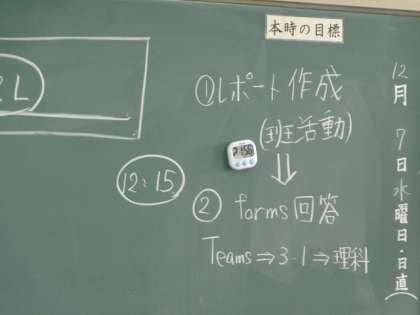 本時の目標
①レポート作成
(班活動)
⇓
12:15
② forms 回答
Teams⇒3-1⇒理科
12月7日水曜日・日直(
2L